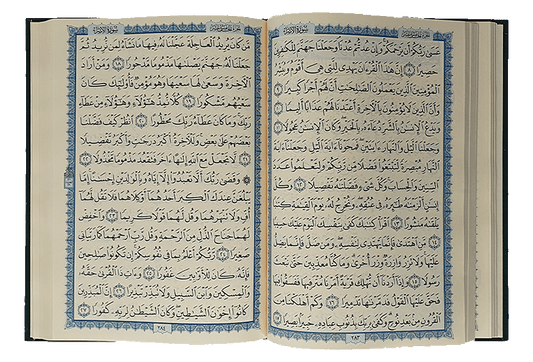 سُورَةُ الإِسْرَاءِ
عَسَىٰ رَبُّكُمْ أَن يَرْحَمَكُمْ وَإِنْ عُدتُّمْ عُدْنَا وَجَعَلْنَا جَهَنَّمَ لِلْكَٰفِرِينَ
حَصِيرًا ٨ إِنَّ هَٰذَا ٱلْقُرْءَانَ يَهْدِى لِلَّتِى هِىَ أَقْوَمُ وَيُبَشِّرُ
ٱلْمُؤْمِنِينَ ٱلَّذِينَ يَعْمَلُونَ ٱلصَّٰلِحَٰتِ أَنَّ لَهُمْ أَجْرًا كَبِيرًا ٩
وَأَنَّ ٱلَّذِينَ لَا يُؤْمِنُونَ بِٱلْءَاخِرَةِ أَعْتَدْنَا لَهُمْ عَذَابًا أَلِيمًا ١٠
وَيَدْعُ ٱلْإِنسَٰنُ بِٱلشَّرِّ دُعَآءَهُۥ بِٱلْخَيْرِ وَكَانَ ٱلْإِنسَٰنُ عَجُولًا ١١
وَجَعَلْنَا ٱلَّيْلَ وَٱلنَّهَارَ ءَايَتَيْنِ فَمَحَوْنَآ ءَايَةَ ٱلَّيْلِ وَجَعَلْنَآ ءَايَةَ
ٱلنَّهَارِ مُبْصِرَةً لِّتَبْتَغُوا۟ فَضْلًا مِّن رَّبِّكُمْ وَلِتَعْلَمُوا۟ عَدَدَ
ٱلسِّنِينَ وَٱلْحِسَابَ وَكُلَّ شَىْءٍ فَصَّلْنَٰهُ تَفْصِيلًا ١٢ وَكُلَّ
إِنسَٰنٍ أَلْزَمْنَٰهُ طَٰٓئِرَهُۥ فِى عُنُقِهِۦ وَنُخْرِجُ لَهُۥ يَوْمَ ٱلْقِيَٰمَةِ كِتَٰبًا
يَلْقَىٰهُ مَنشُورًا ١٣ ٱقْرَأْ كِتَٰبَكَ كَفَىٰ بِنَفْسِكَ ٱلْيَوْمَ عَلَيْكَ حَسِيبًا
١٤ مَّنِ ٱهْتَدَىٰ فَإِنَّمَا يَهْتَدِى لِنَفْسِهِۦ وَمَن ضَلَّ فَإِنَّمَا يَضِلُّ
عَلَيْهَا وَلَا تَزِرُ وَازِرَةٌ وِزْرَ أُخْرَىٰ وَمَا كُنَّا مُعَذِّبِينَ حَتَّىٰ نَبْعَثَ
رَسُولًا ١٥ وَإِذَآ أَرَدْنَآ أَن نُّهْلِكَ قَرْيَةً أَمَرْنَا مُتْرَفِيهَا فَفَسَقُوا۟ فِيهَا
فَحَقَّ عَلَيْهَا ٱلْقَوْلُ فَدَمَّرْنَٰهَا تَدْمِيرًا ١٦ وَكَمْ أَهْلَكْنَا مِنَ
ٱلْقُرُونِ مِنۢ بَعْدِ نُوحٍ وَكَفَىٰ بِرَبِّكَ بِذُنُوبِ عِبَادِهِۦ خَبِيرًۢا بَصِيرًا ١٧
٢٨٣
سُورَةُ الإِسْرَاءِ
مَّن كَانَ يُرِيدُ ٱلْعَاجِلَةَ عَجَّلْنَا لَهُۥ فِيهَا مَا نَشَآءُ لِمَن نُّرِيدُ ثُمَّ
جَعَلْنَا لَهُۥ جَهَنَّمَ يَصْلَىٰهَا مَذْمُومًا مَّدْحُورًا ١٨ وَمَنْ أَرَادَ
ٱلْءَاخِرَةَ وَسَعَىٰ لَهَا سَعْيَهَا وَهُوَ مُؤْمِنٌ فَأُو۟لَٰٓئِكَ كَانَ
سَعْيُهُم مَّشْكُورًا ١٩ كُلًّا نُّمِدُّ هَٰٓؤُلَآءِ وَهَٰٓؤُلَآءِ مِنْ عَطَآءِ
رَبِّكَ وَمَا كَانَ عَطَآءُ رَبِّكَ مَحْظُورًا ٢٠ ٱنظُرْ كَيْفَ فَضَّلْنَا
بَعْضَهُمْ عَلَىٰ بَعْضٍ وَلَلْءَاخِرَةُ أَكْبَرُ دَرَجَٰتٍ وَأَكْبَرُ تَفْضِيلًا
٢١ لَّا تَجْعَلْ مَعَ ٱللَّهِ إِلَٰهًا ءَاخَرَ فَتَقْعُدَ مَذْمُومًا مَّخْذُولًا ٢٢
۞ وَقَضَىٰ رَبُّكَ أَلَّا تَعْبُدُوٓا۟ إِلَّآ إِيَّاهُ وَبِٱلْوَٰلِدَيْنِ إِحْسَٰنًا إِمَّا
يَبْلُغَنَّ عِندَكَ ٱلْكِبَرَ أَحَدُهُمَآ أَوْ كِلَاهُمَا فَلَا تَقُل لَّهُمَآ
أُفٍّ وَلَا تَنْهَرْهُمَا وَقُل لَّهُمَا قَوْلًا كَرِيمًا ٢٣ وَٱخْفِضْ
لَهُمَا جَنَاحَ ٱلذُّلِّ مِنَ ٱلرَّحْمَةِ وَقُل رَّبِّ ٱرْحَمْهُمَا كَمَا رَبَّيَانِى
صَغِيرًا ٢٤ رَّبُّكُمْ أَعْلَمُ بِمَا فِى نُفُوسِكُمْ إِن تَكُونُوا۟ صَٰلِحِينَ
فَإِنَّهُۥ كَانَ لِلْأَوَّٰبِينَ غَفُورًا ٢٥ وَءَاتِ ذَا ٱلْقُرْبَىٰ حَقَّهُۥ
وَٱلْمِسْكِينَ وَٱبْنَ ٱلسَّبِيلِ وَلَا تُبَذِّرْ تَبْذِيرًا ٢٦ إِنَّ ٱلْمُبَذِّرِينَ
كَانُوٓا۟ إِخْوَٰنَ ٱلشَّيَٰطِينِ وَكَانَ ٱلشَّيْطَٰنُ لِرَبِّهِۦ كَفُورًا ٢٧
٢٨٤